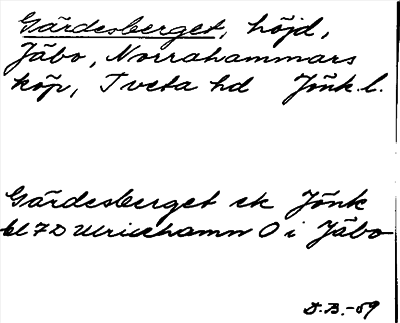 Gärdesberget, höjd,
Jäbo, Norrahammars
köp, Tveta hd Jönk. l.
Gärdesberget ek Jönk
bl 7D Ulricehamn O i Jäbo
D.B.-59